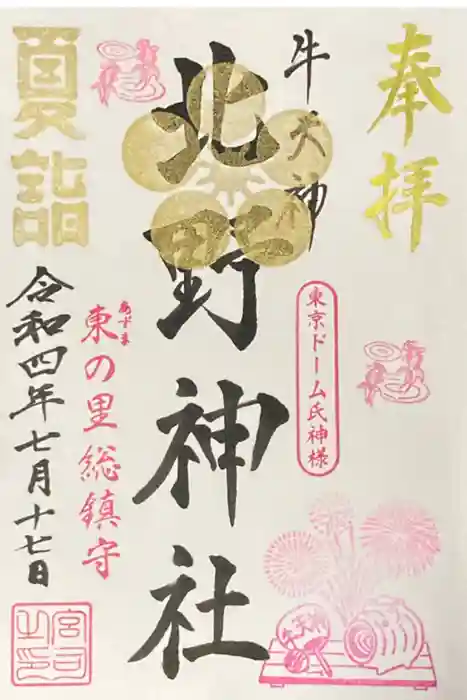 奉拝
牛天神
東京ドーム氏神様
北野神社
夏詣
あずま
東の里総鎮守
令和四年七月十七日
宮司之印
牛天神